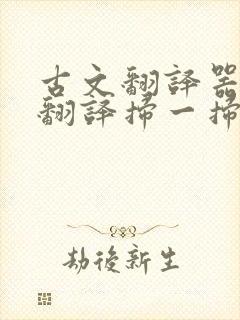 古文翻譯器
翻譯掃一掃
劫後新生